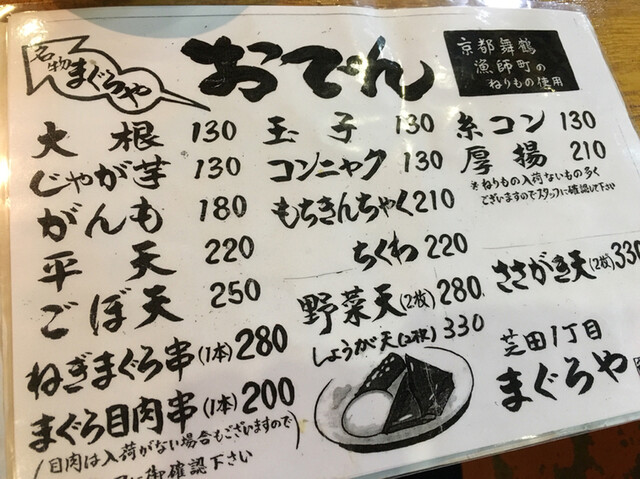 名物
まぐろや
おでん
京都舞鶴
漁師町の
ねりもの使用
大根 130
玉子 130
糸コン 130
じゃが芋 130
コンニャク 130
厚揚 210
※ねりもの入荷ないもの多く
ございますのでスタッフに確認して下さい
がんも 180
もちきんちゃく 210
平天 220
ちくわ 220
ごぼ天 250
野菜天(2枚) 280
ささがき天(2枚) 330
ねぎまぐろ串(1本) 280
しょうが天(2枚) 330
まぐろ目肉串(1本) 200
(目肉は入荷がない場合もございますので)
に御確認下さい
芝田1丁目
まぐろや